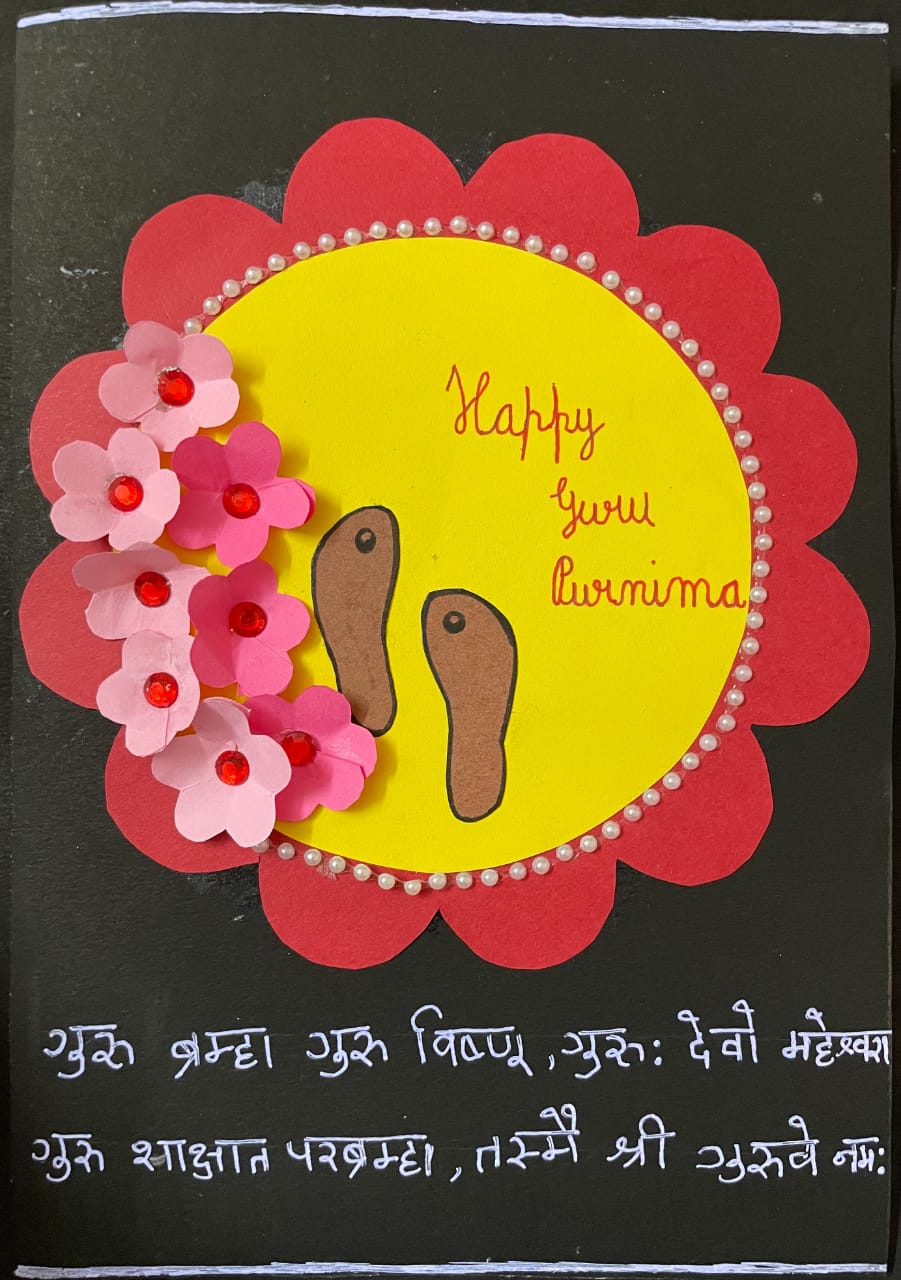 Happy
Guru
Purnima
गुरु ब्रम्हा गुरु विष्णू, गुरु: देवो महेश्वरा
गुरु शाक्षात परब्रम्हा, तस्मै श्री गुरुवे नम: